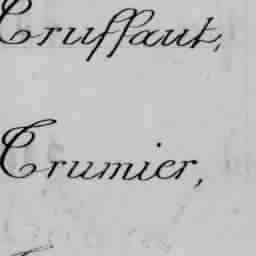 Truffaut,
Trumier,